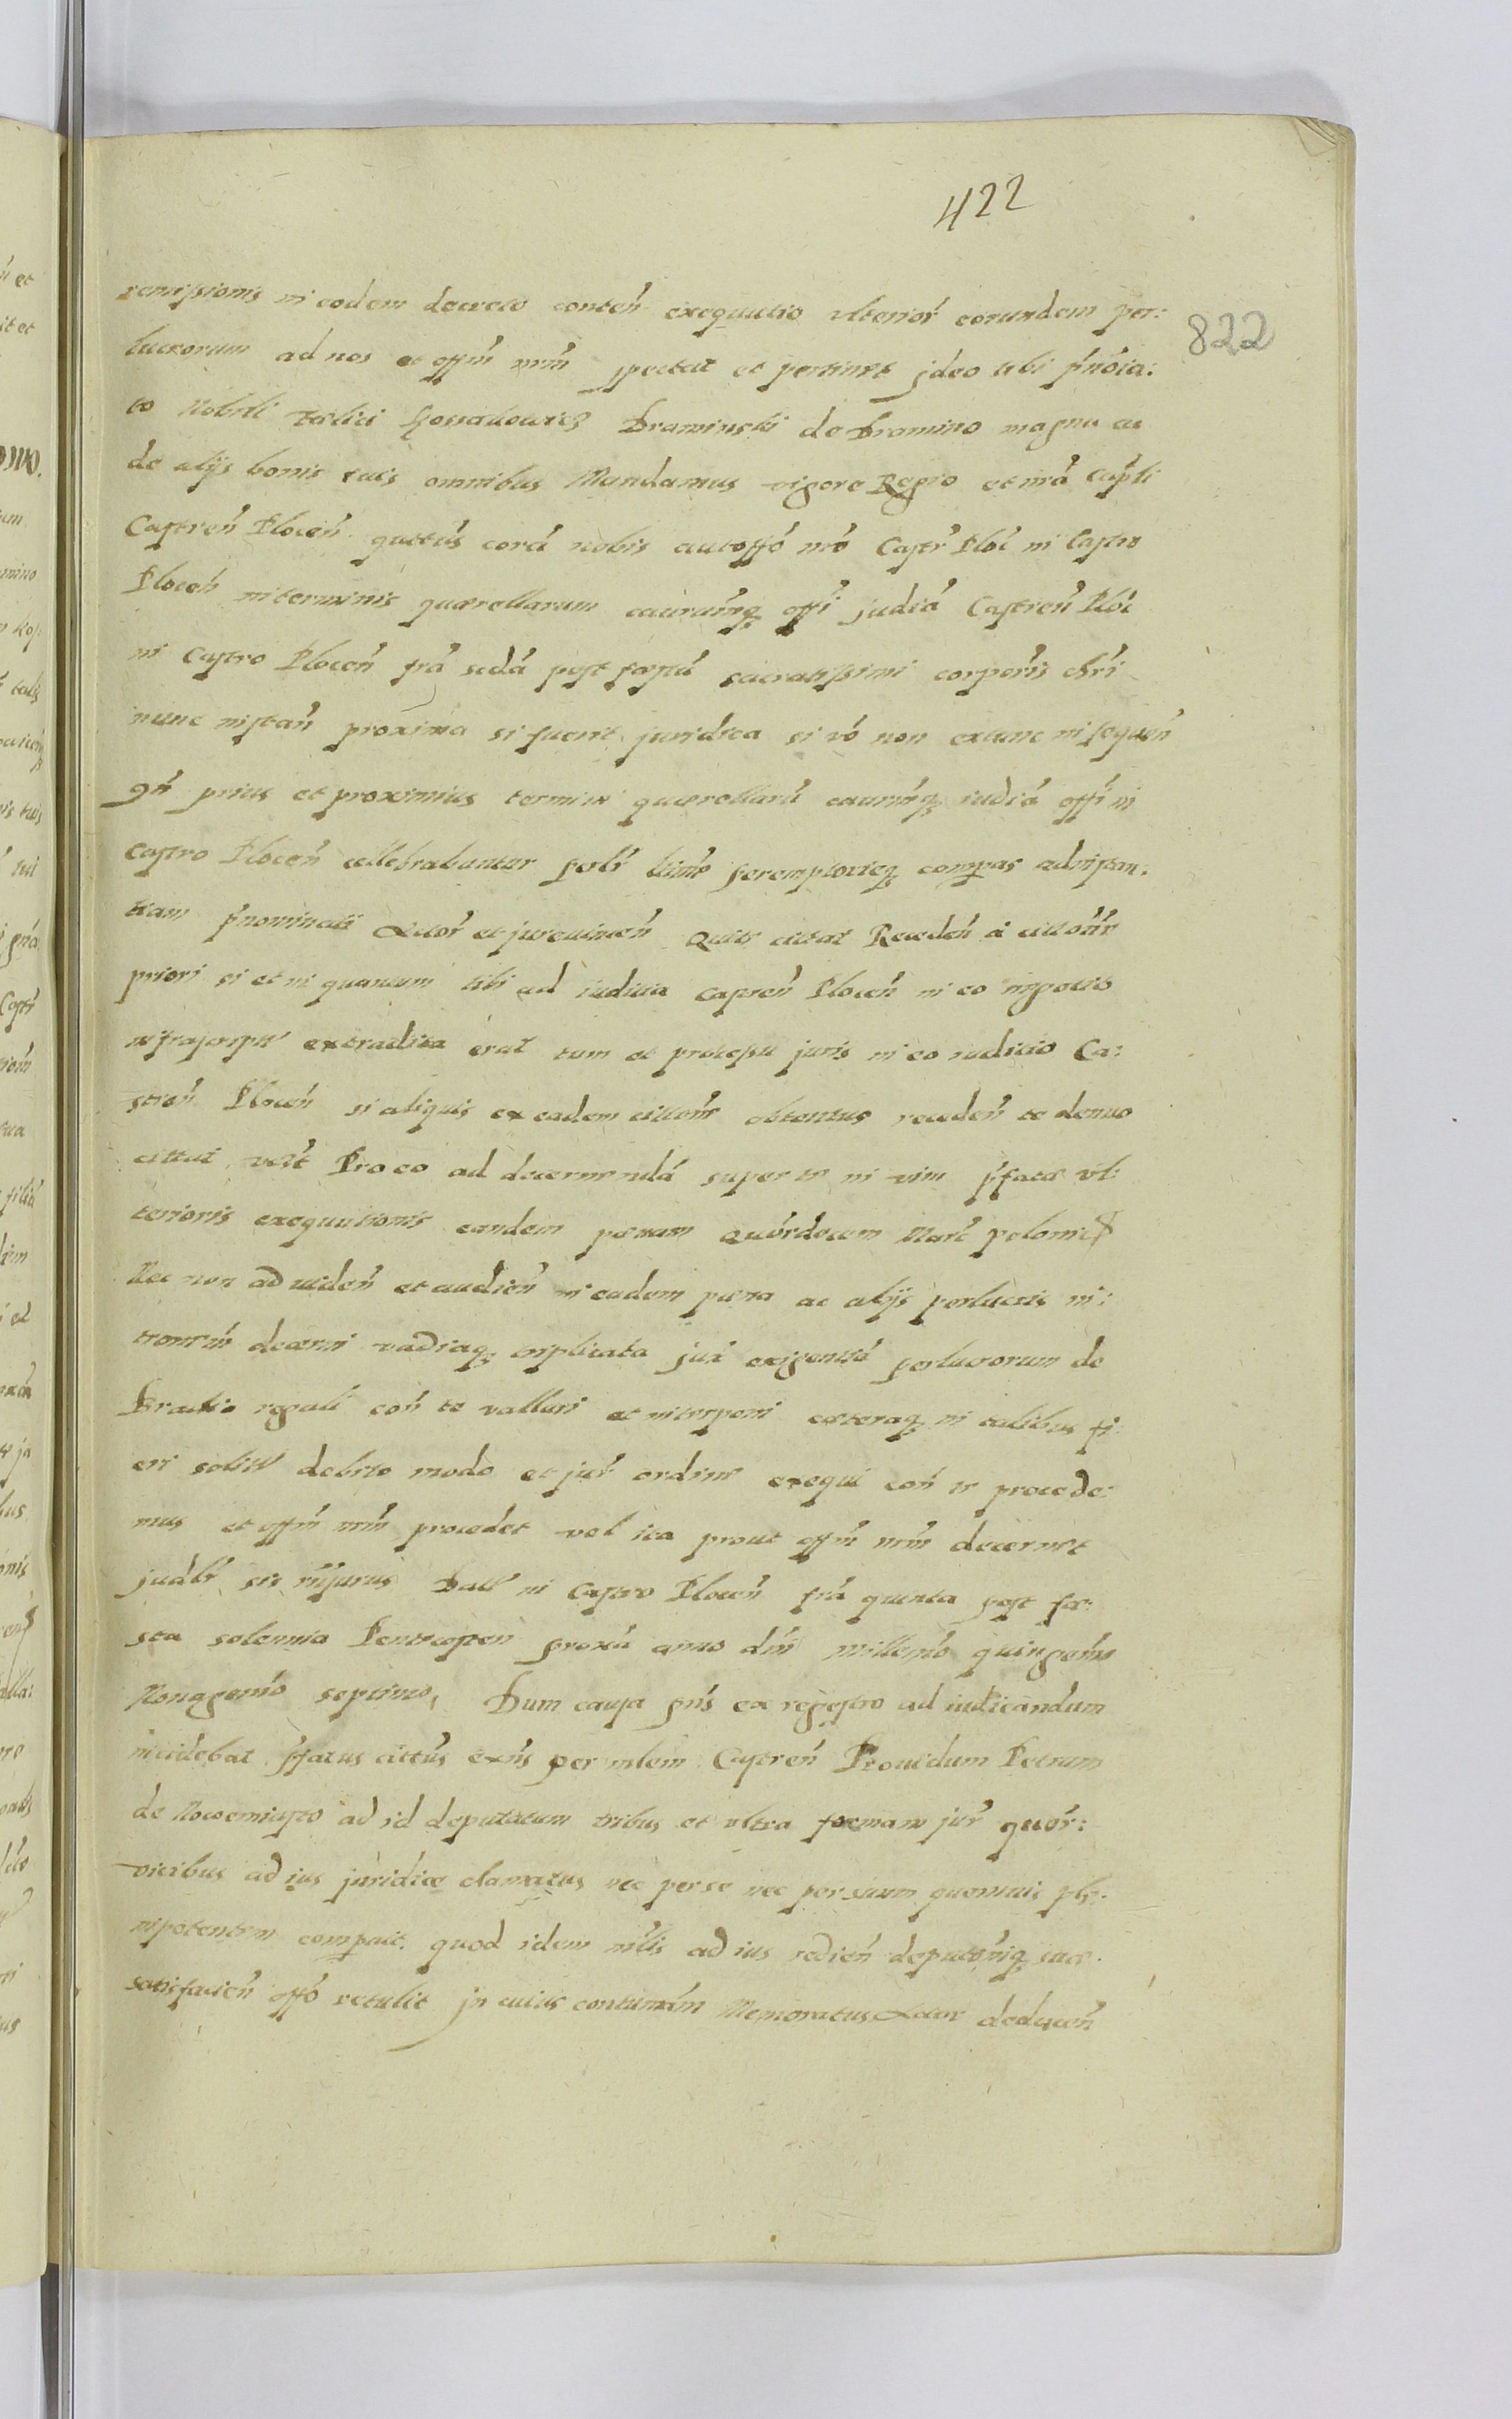 422
822
remissionis in eodem decreto conten exequutio ulterior eorundem per:
lucrorum ad nos et offm nrm spectat et pertinet jdeo tibi pnoia:
to Nobili Felici Kossakowicz Draminski de Dramino magna ac
de alijs bonis tuis omnibus Mandamus vigore Regio et nra Capli
Castren Plocen quatus cora nobis aut offo nro Castr Ploc in Castro
Plocen in terminis quaerellarum causarumq offi judicia Castren Ploc
in Castro Plocen fra scda post festu sacratissimi corporis chri
nunc instan proxima si fuerit juridica si vo non extunc in sequen
prius et proximius termini quaerellaru causarumq iudicia offi in
castro Plocen cellebrabuntur peremptorieq compas ad instan:
tiam pnominati Actor et jurevincen Quite citat Receden a citione
priori si et in quantum tibi ad iudicia Castren Plocen in eo negotio
infrascripto extradita erat tum et processu juris in eo iudicio Ca:
stren Plocen si aliquis ex eadem citione obtentus receden te denuo
cittat Pro eo ad decernenda super te in vim pfatae vl:
terioris exequutionis eandem paenam Quatuordecem Marc polonic
Nec non ad viden et audien in eadem paena ac alijs perlucris in:
tromism decerni vadiaq triplicata jux exigentia perlucrorum de
Brachio regali con te vallari et interponi caeteraq in talibus fi:
eri solita debito modo et jur ordine exequi con te procede:
mus et offm nrm procedet vel ita prout offm nrm decernet
judlr sis rnsurus Datt in Castro Plocen fra quinta post fe:
sta solennia Pentecosten proxa anno dni millemo quingenmo
Nonagenmo septimo, Dum causa pns ex regestro ad iudicandum
incidebat pfatus cittus exns per mlem Castren Prouidum Petrum
de Nowemiasto ad id deputatum tribus et ultra formam jur quor:
vicibus ad ius juridice clamatus nec per se nec per suum quemuis ple:
nipotentem comparuit quod idem mlis ad ius redien deputoniq suae
satisfacien offo retulit jn cuius contumam Memoratus Actor deducen